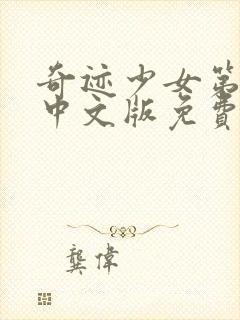 奇迹少女第
中文版免费
龔偉